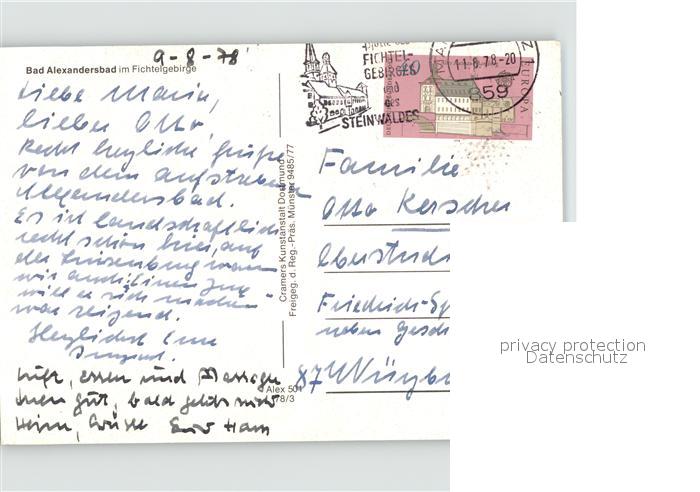 9-8-78
Bad Alexandersbad im Fichtelgebirge
Liebe Maria,
lieber Otto,
recht herzliche Grüße
von dem aufstrebenden
Alexandersbad.
Es ist landschaftlich
recht schön hier, auf
der Luisenburg waren
wir auch
will er sich machen
war reizend.
Herzlichst Eure
Luft, essen und Massagen
tuen gut, bald geht's nach
Heim, Grüße Euer Hans
Cramers Kunstanstalt Dortmund
Freigeg. d. Reg.-Präs. Münster 9485/77
Alex 501
78/3
FICHTEL-
GEBIRGES
und
des
STEINWALDES
11.8.78-20
859
EUROPA
40
Familie
Otto Kerscher
Oberstudi
Friedrich-Sp
neben Gesch
87 Würzbu
privacy protection
Datenschutz